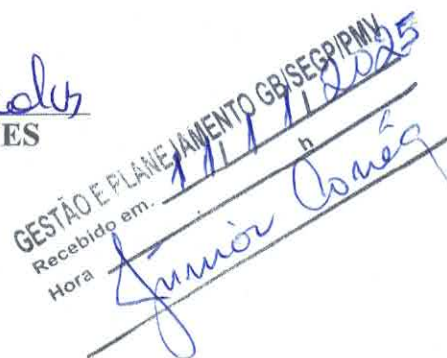 ES
GESTÃO E PLANEJAMENTO GB/SEGP/PMV
Recebido em. 11/11/2025
Hora h
Júnior Corrêa